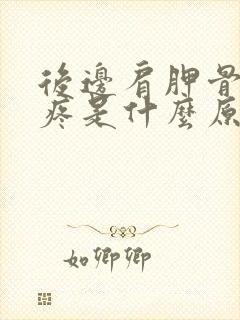 後邊肩胛骨
疼是什麼原
如卿卿